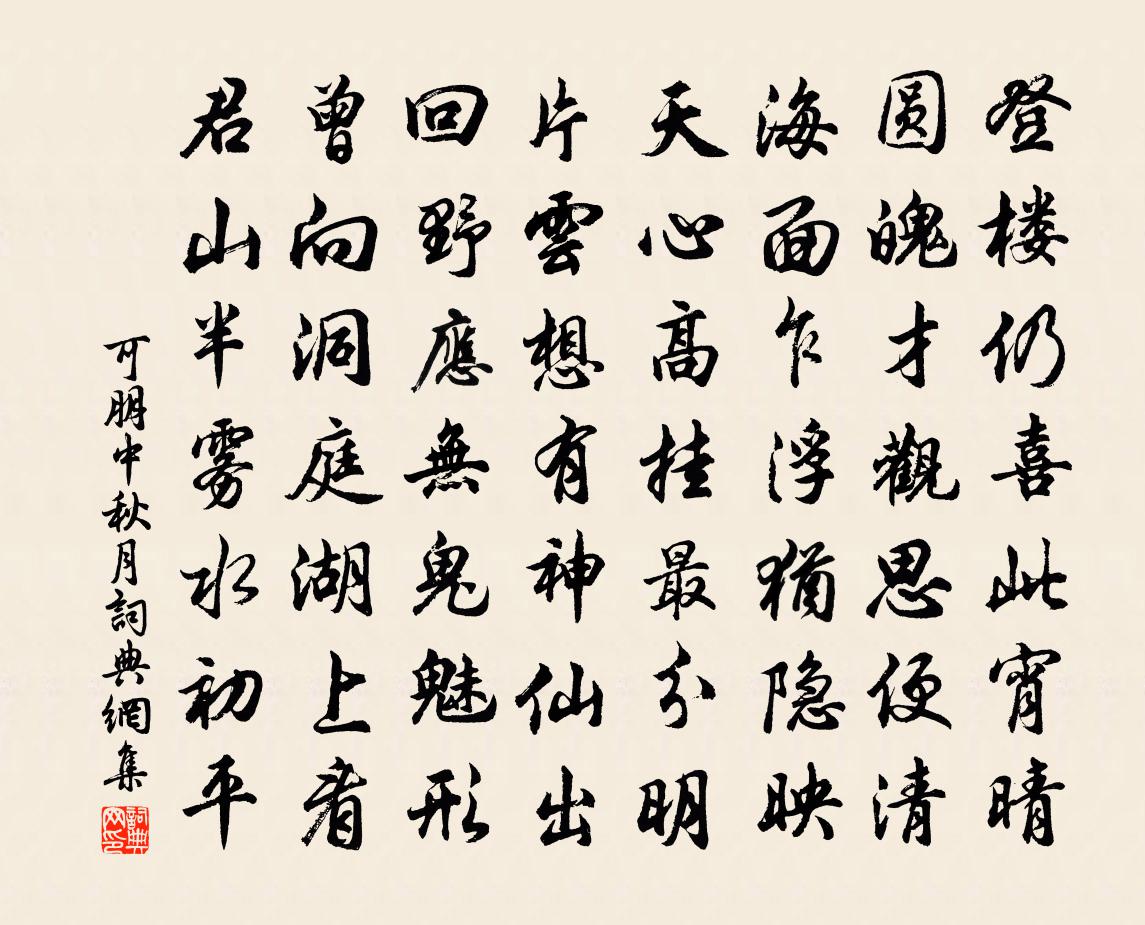 登楼仍喜此宵晴
圆魄才觀思便清
海面乍浮猶隐映
天心高挂最分明
片雲想有神仙出
回野應無鬼魅形
曾向洞庭湖上看
君山半雾水初平
可朋中秋月詞典網集
詞典
网印